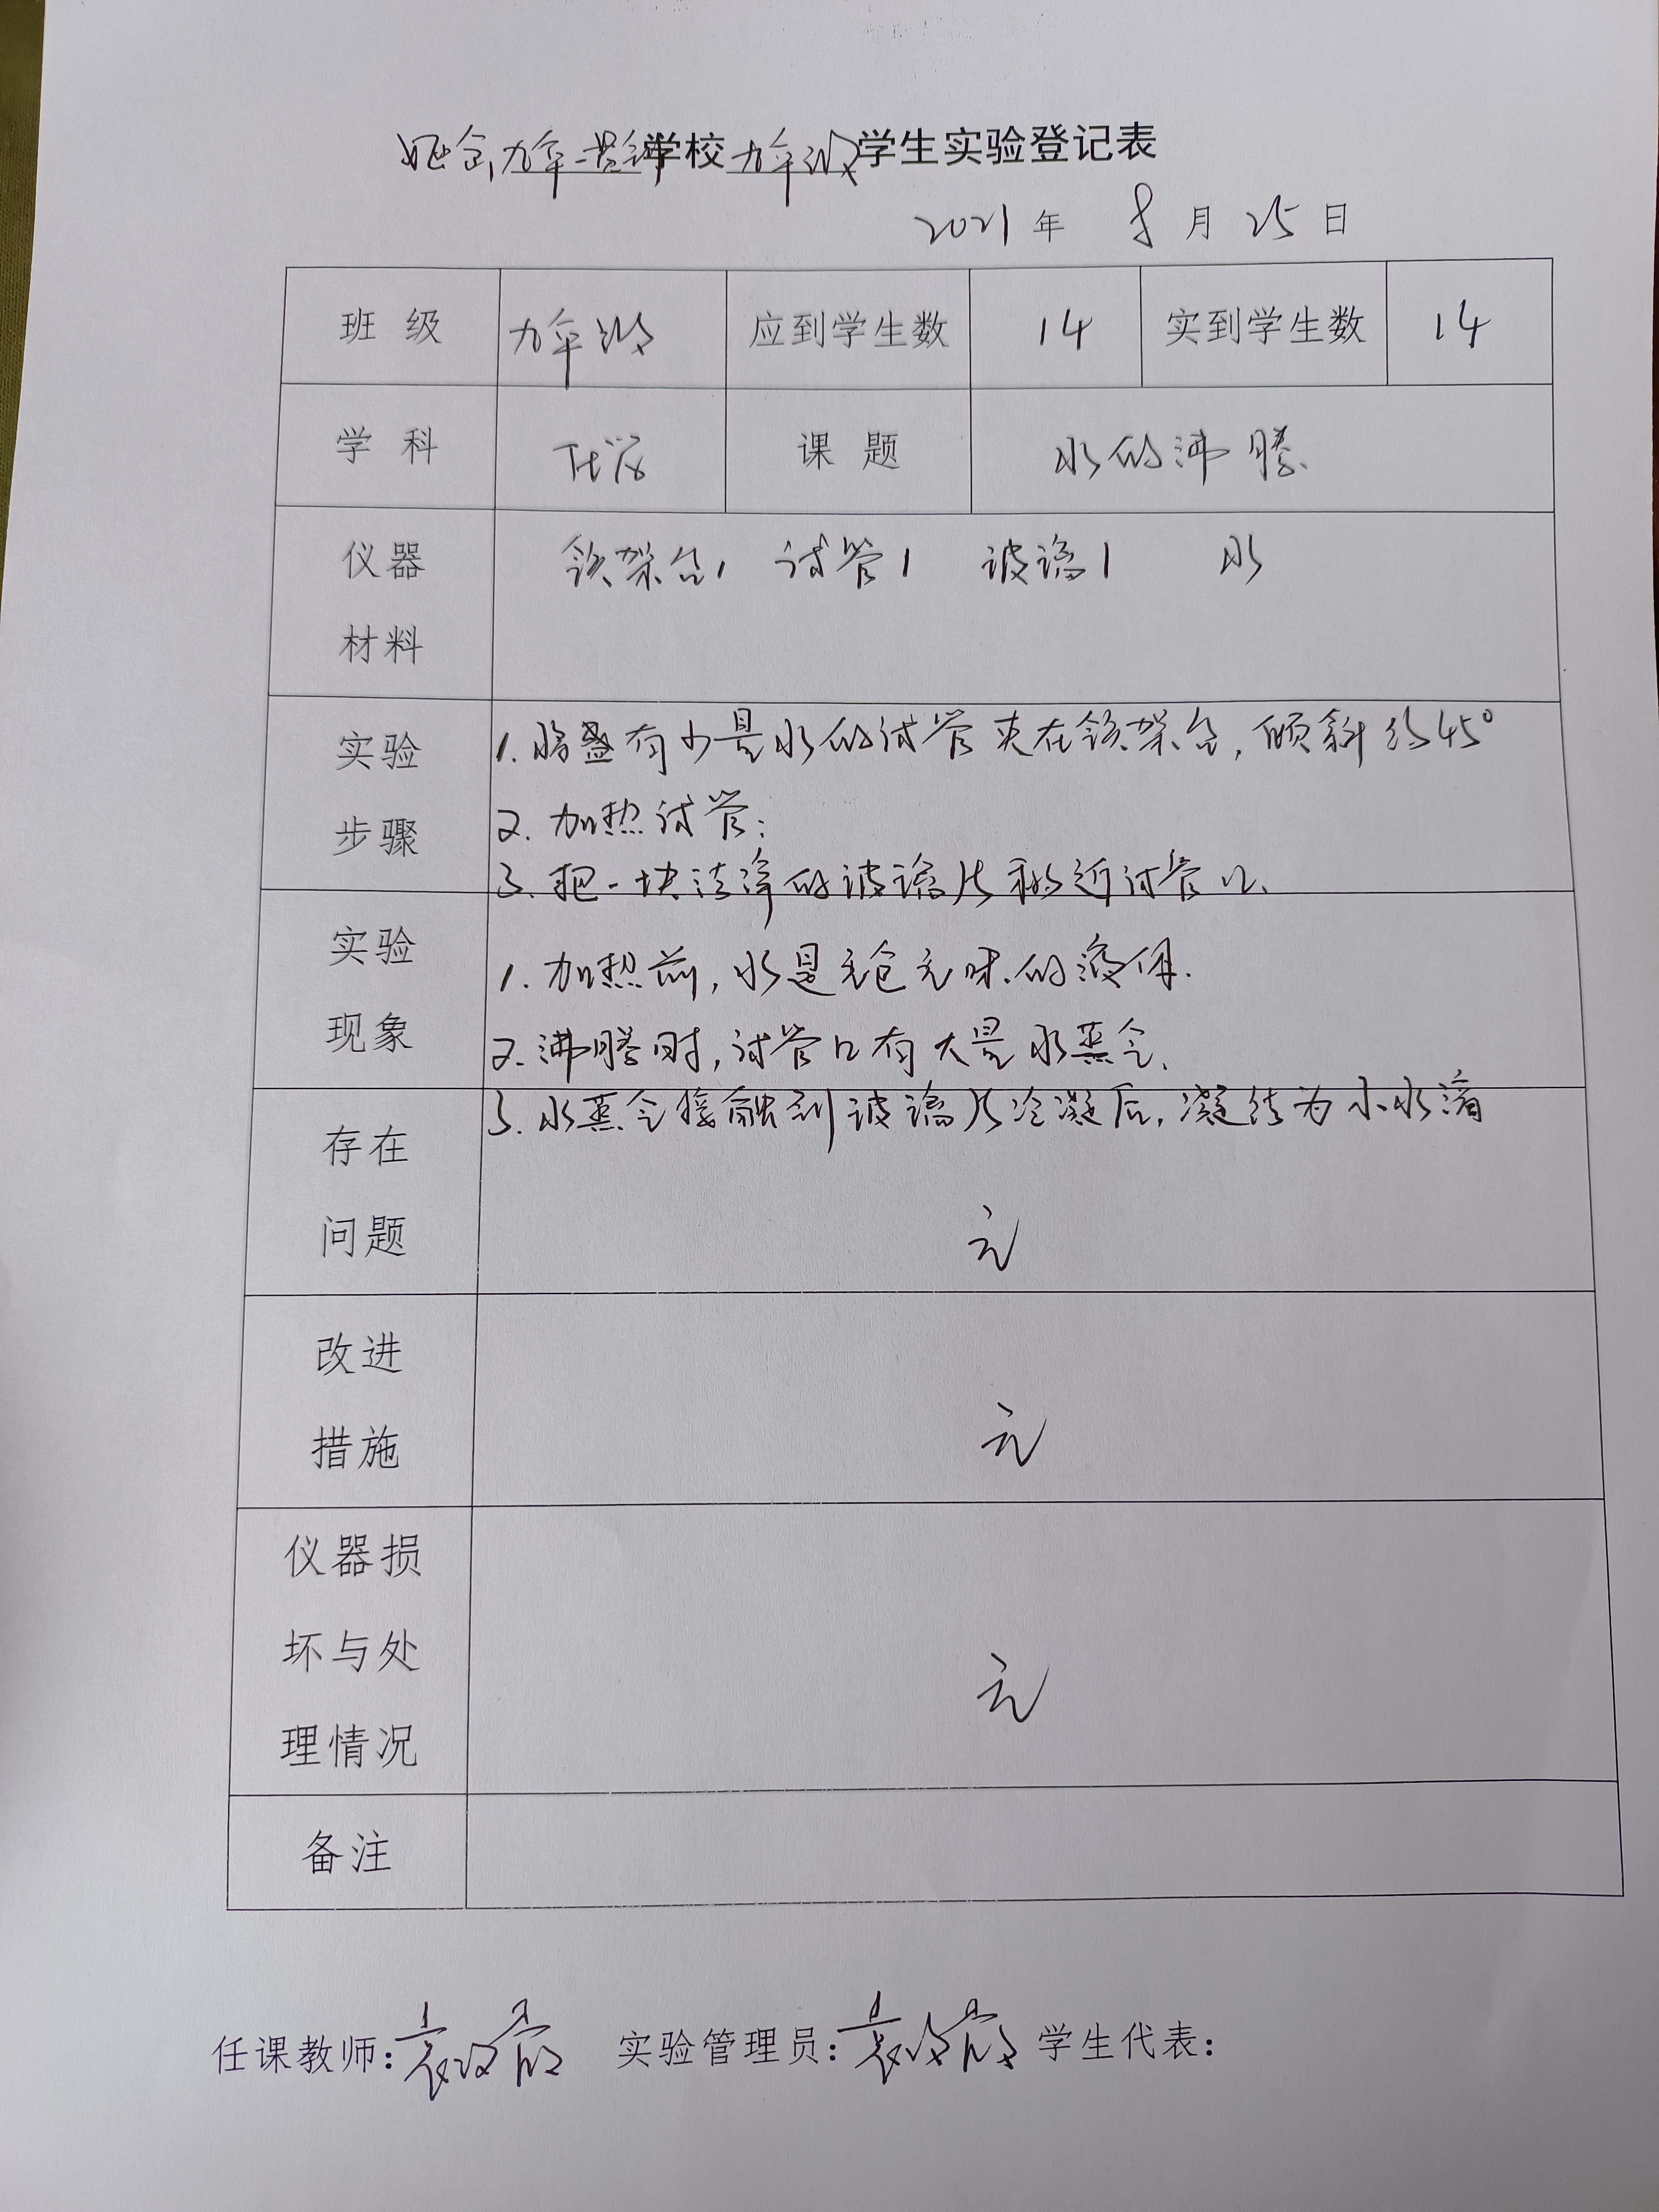 九年一贯制学校九年级学生实验登记表
2021年 8月25日
班 级 九年级 应到学生数 14 实到学生数 14
学 科 化学 课 题 水的沸腾
仪器 材料 铁架台1 试管1 玻璃1 水
实验 步骤
1. 将盛有少量水的试管夹在铁架台,倾斜约45°
2. 加热试管;
3. 把一块洁净的玻璃片移近试管口.
实验 现象
1. 加热前,水是无色无味的液体.
2. 沸腾时,试管口有大量水蒸气.
3. 水蒸气接触到玻璃片冷凝后,凝结为小水滴
存在 问题 无
改进 措施 无
仪器损 坏与处 理情况 无
备注
任课教师: 实验管理员: 学生代表: